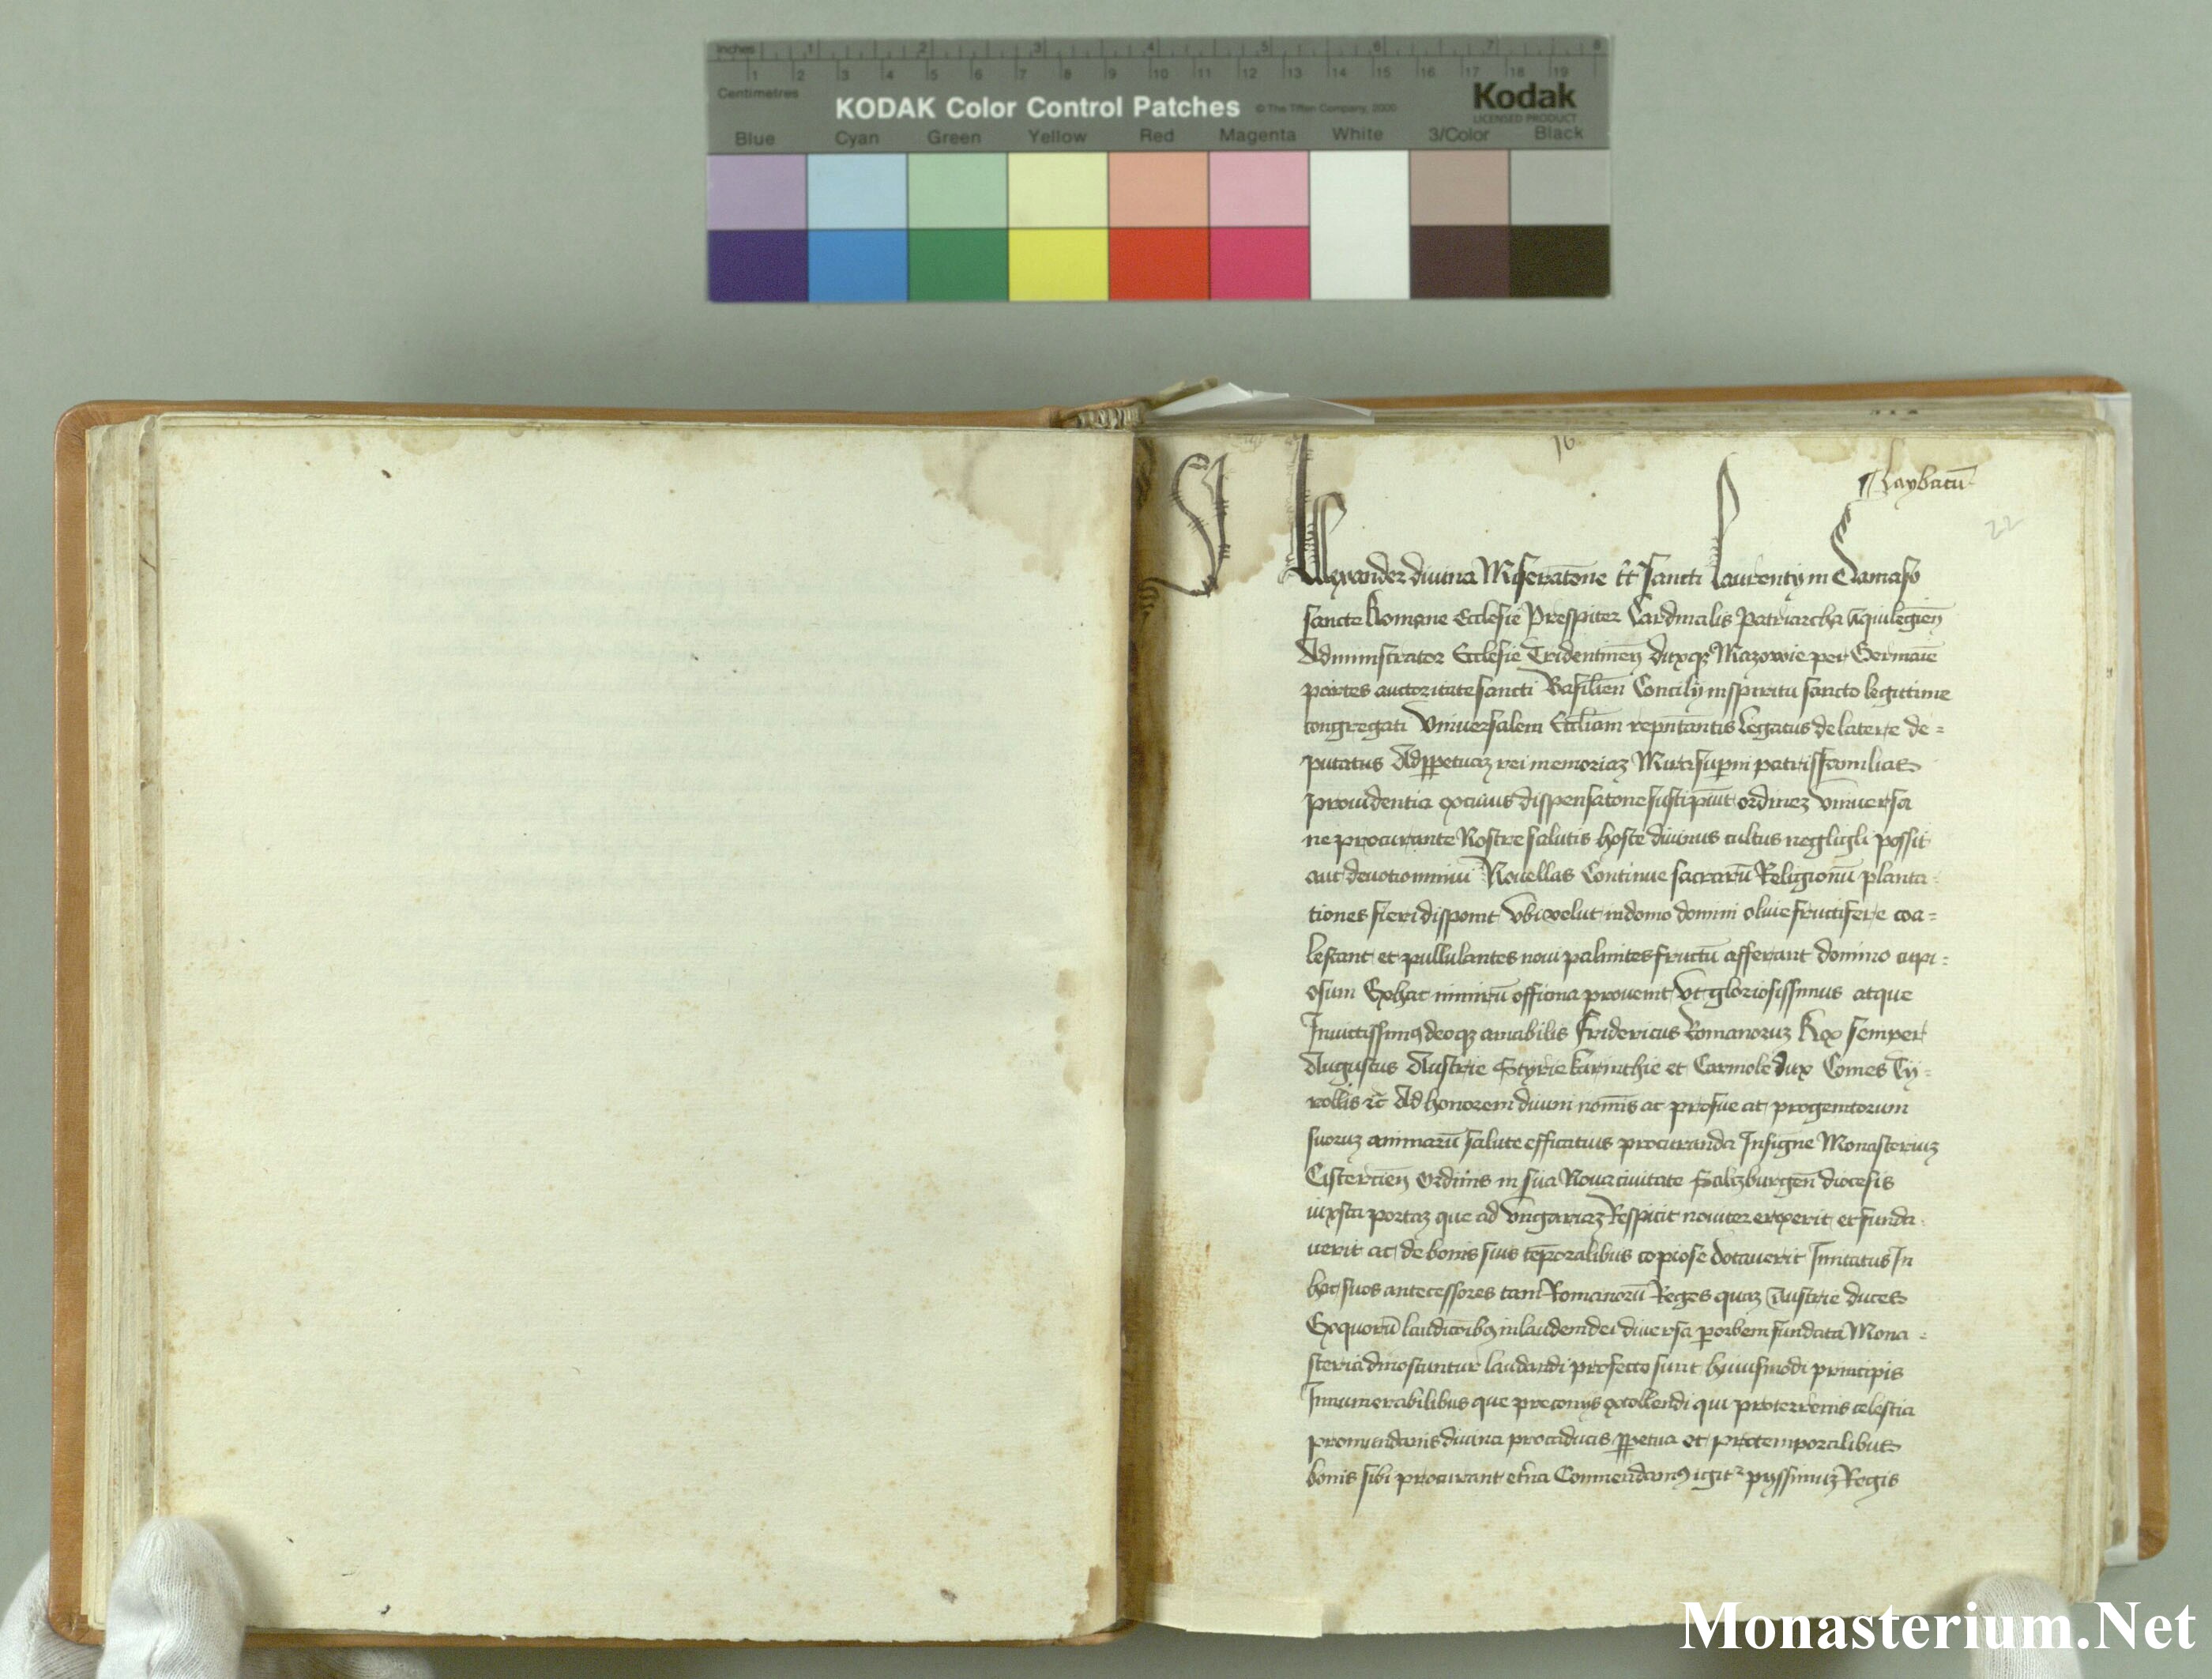 inches 1 2 3 4 5 6 7 8
1 2 3 4 5 6 7 8 9 10 11 12 13 14 15 16 17 18 19
Centimetres
KODAK Color Control Patches © The Tiffen Company, 2000 Kodak
LICENSED PRODUCT
Blue Cyan Green Yellow Red Magenta White 3/Color Black
16
Laybacū
22
Alexander divina Miseratōne tt̄ Sancti Laurentÿ in Damaso
sancte Romane Ecclesie Prespiter Cardinalis Patriarcha Aquilegien̄
Administrator Ecclesie Tridentineñ duxqʒ Mazowie per Germaīe
partes auctoritate sancti Basilien̄ Concilÿ in spiritu sancto legittime
congregati Vniuersalem Eccl̄iam rep̄ntantis Legatus de latere de=
putatus Ad ꝑpetuaʒ rei memoriaʒ Mira sup̄ni patrisfamilias
prouidentia ex cuius dispensatōne ordinez vniuersa
ne procurante Nostre salutis hoste diuinus cultus negligli possit
aut deuotio minui Nouellas Continue sacrarū Religionū planta-
tiones fieri disponit Vbi velut in domo domini oliue fructifere coa=
lescant et pullulantes noui palmites fructū afferant domino cupi=
osum Ex hac nimirū officina prouenit Vt gloriosissimus atque
Inuictissimꝰ deoqʒ amabilis Fridericus Romanoruʒ Rex semper
Augustus Austrie Styrie Karinthie et Carniole dux Comes Tÿ=
rollis ꝛc̄ Ad honorem diuini nōmis ac pro sue ac progenitorum
suoruʒ animarū salute efficatius procuranda Insigne Monasteriuʒ
Cistercien̄ Ordinis in sua Noua ciuitate Saltzburgen̄ diocesis
iuxsta portaʒ que ad Vngariaʒ Respicit nouiter erexerit et funda-
uerit ac de bonis suis tēporalibus copiose dotauerit Imitatus In
hoc suos antecessores tam Romanorū Reges quaʒ Austrie duces
Ex quorū in laudem dei diuersa ꝑ orbem fundata Mona=
steria dinoscuntur laudandi profecto sunt huiusmodi principis
Innumerabilibus que preconÿs extollendi qui pro terrenis celestia
pro mundanis diuina pro caducis ꝑpetua et pro temporalibus
bonis sibi procurant et̄na Commendamꝰ igit᷑ pyssimuʒ Regis
Monasterium.Net